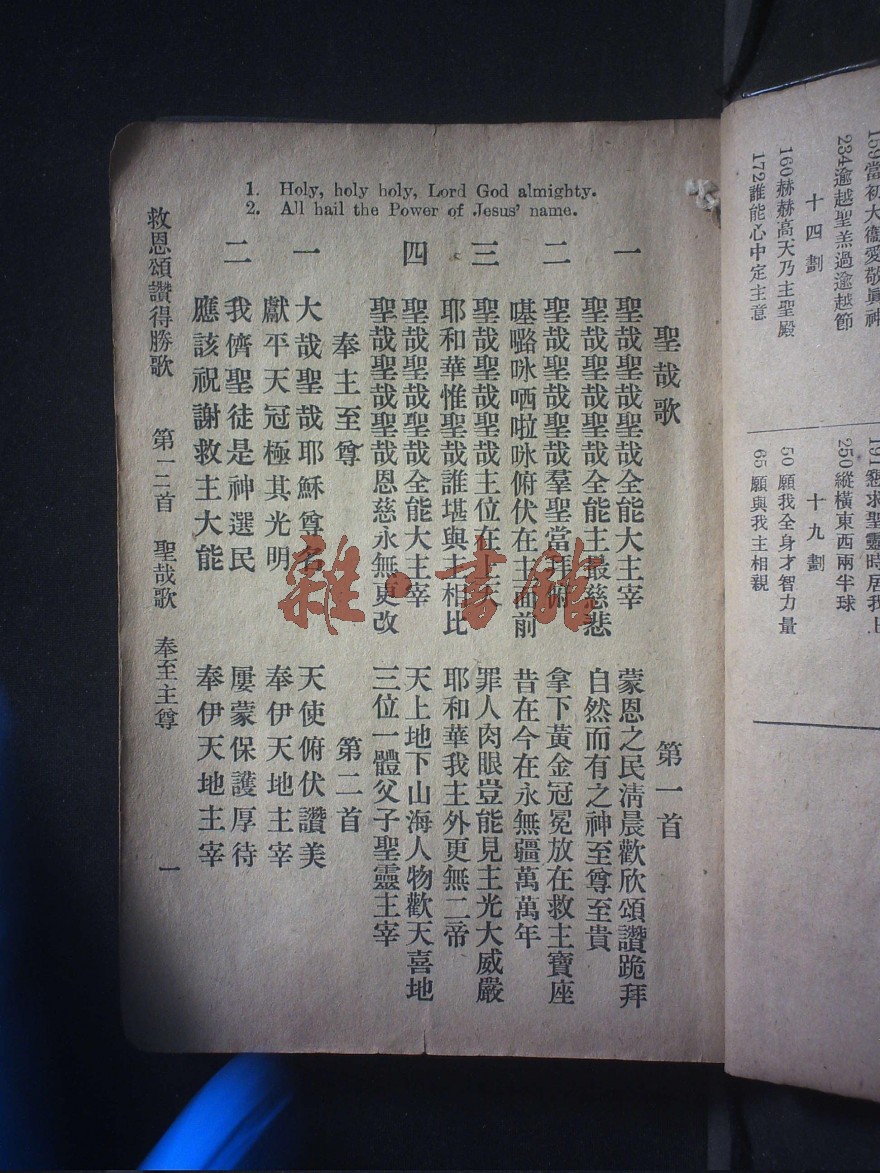 1. Holy, holy holy, Lord God almighty.
2. All hail the Power of Jesus' name.
聖哉歌 第一首
一 聖哉聖哉聖哉全能大主宰 蒙恩之民清晨歡欣頌讚跪拜
聖哉聖哉聖哉全能主最慈悲 自然而有之神至尊至貴
二 聖哉聖哉聖哉羣聖當拜俯 拿下黃金冠冕放在救主寶座
㗭㖷咏哂啦咏俯伏在主面前 昔在今在永無疆萬萬年
三 聖哉聖哉聖哉主位在 罪人肉眼豈能見主光大威嚴
耶和華惟聖哉誰堪與主相比 耶和華我主外更無二帝
四 聖哉聖哉聖哉全能大主宰 天上地下山海人物歡天喜地
聖哉聖哉聖哉恩慈永無更改 三位一體父子聖靈主宰
奉主至尊 第二首
一 大哉聖哉耶穌尊名 天使俯伏讚美
獻平天冠極其光明 奉伊天地主宰
二 我儕聖徒是神選民 屢蒙保護厚待
應該祝謝救主大能 奉伊天地主宰
救恩頌讚得勝歌 第一二首 聖哉歌 奉至主尊 一
159當初大衞愛敬眞神
234逾越聖羔過逾越節
十四劃
160赫赫高天乃主聖殿
172誰能心中定主意
191懇求聖靈時居我
250縱橫東西兩半球
十九劃
50願我全身才智力量
65願與我主相親
雜·書館